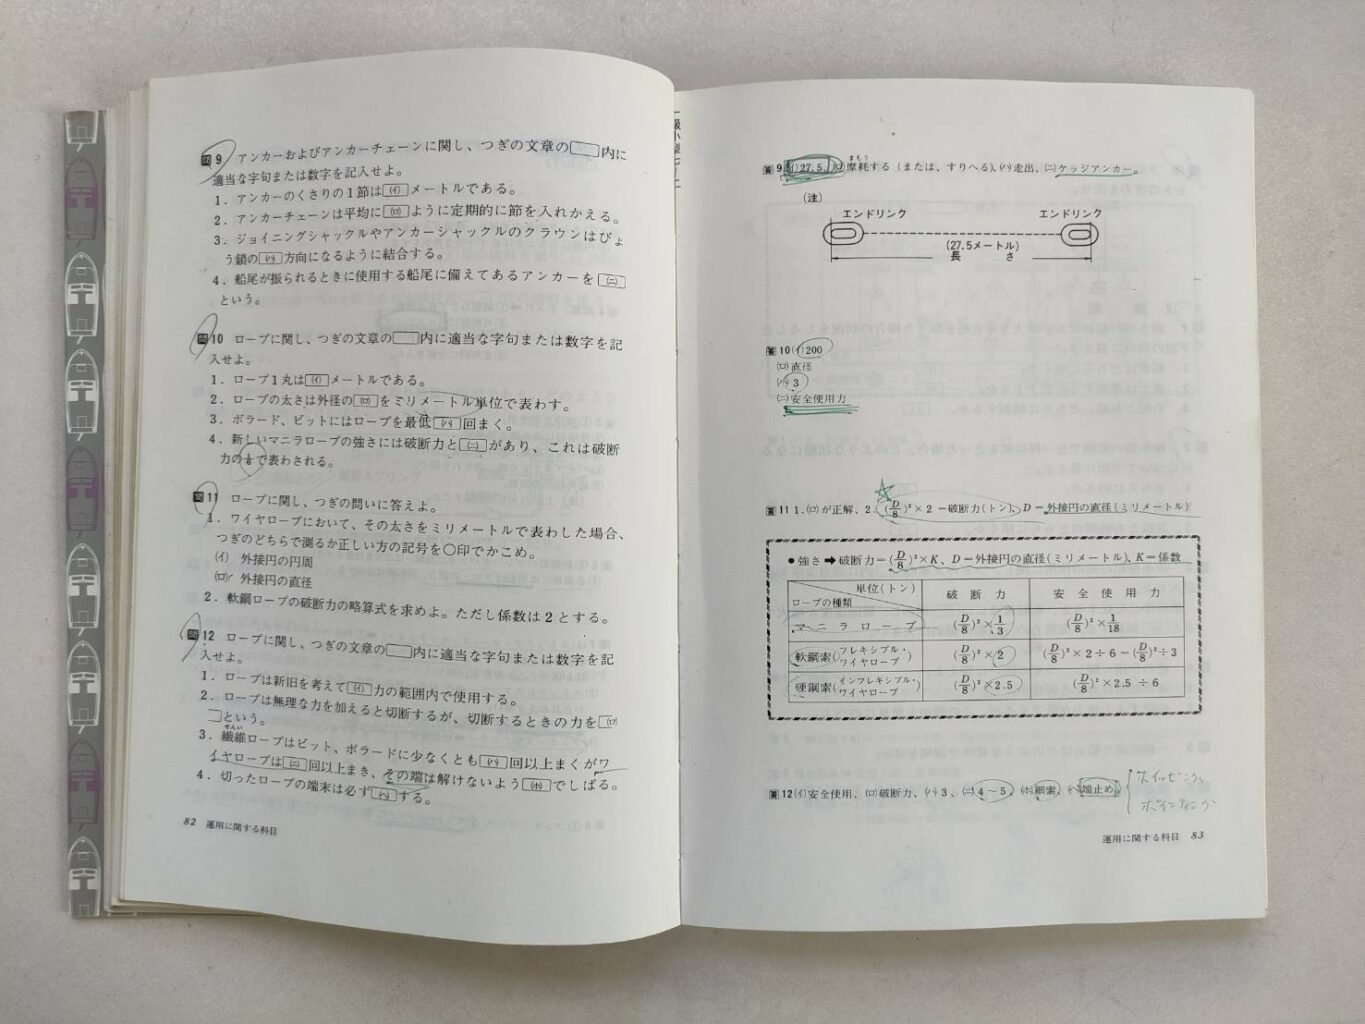 問9 アンカーおよびアンカーチェーンに関し、つぎの文章の□内に
適当な字句または数字を記入せよ。
1．アンカーのくさりの1節は(イ)メートルである。
2．アンカーチェーンは平均に(ロ)ように定期的に節を入れかえる。
3．ジョイニングシャックルやアンカーシャックルのクラウンはびょ
う鎖の(ハ)方向になるように結合する。
4．船尾が振られるときに使用する船尾に備えてあるアンカーを(ニ)
という。
問10 ロープに関し、つぎの文章の□内に適当な字句または数字を記
入せよ。
1．ロープ1丸は(イ)メートルである。
2．ロープの太さは外径の(ロ)をミリメートル単位で表わす。
3．ボラード、ビットにはロープを最低(ハ)回まく。
4．新しいマニラロープの強さには破断力と(ニ)があり、これは破断
力の1/6で表わされる。
問11 ロープに関し、つぎの問いに答えよ。
1．ワイヤロープにおいて、その太さをミリメートルで表わした場合、
つぎのどちらで測るか正しい方の記号を○印でかこめ。
(イ) 外接円の円周
(ロ) 外接円の直径
2．軟鋼ロープの破断力の略算式を求めよ。ただし係数は2とする。
問12 ロープに関し、つぎの文章の□内に適当な字句または数字を記
入せよ。
1．ロープは新旧を考えて(イ)力の範囲内で使用する。
2．ロープは無理な力を加えると切断するが、切断するときの力を(ロ)
□という。
せんい
3．繊維ロープはビット、ボラードに少なくとも(ハ)回以上まくがワ
イヤロープは(ニ)回以上まき、その端は解けないよう(ホ)でしばる。
4．切ったロープの端末は必ず(ヘ)する。
82 運用に関する科目
まもう
答9(イ)27.5、(ロ)摩耗する（または、すりへる）、(ハ)走出、(ニ)ケッジアンカー。
（注）
エンドリンク エンドリンク
(27.5メートル)
長 さ
答10(イ)200
(ロ)直径
(ハ)3
(ニ)安全使用力
答11 1．(ロ)が正解、2．(D/8)²×2＝破断力(トン)、D＝外接円の直径(ミリメートル)
●強さ➡破断力＝(D/8)²×K、D＝外接円の直径(ミリメートル)、K＝係数
単位(トン)
ロープの種類 破断力 安全使用力
マニラロープ (D/8)²×1/3 (D/8)²×1/18
軟鋼索(フレキシブル・ワイヤロープ) (D/8)²×2 (D/8)²×2÷6＝(D/8)²÷3
硬鋼索(インフレキシブル・ワイヤロープ) (D/8)²×2.5 (D/8)²×2.5÷6
答12(イ)安全使用、(ロ)破断力、(ハ)3、(ニ)4～5、(ホ)細索、(ヘ)端止め
ホイッピング
ポインティング
運用に関する科目 83